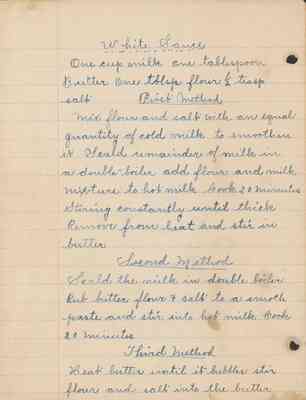 White Sauce
One cup milk one tablespoon
Butter One tblsp flour ½ teasp
salt First Method
Mix flour and salt with an equal
quantity of cold milk to smoothen
it Scald remainder of milk in
a double boiler add flour and milk
mixture to hot milk Cook 20 minutes
Stirring constantly until thick
Remove from heat and stir in
butter
Second Method
Scald the milk in double boiler
Rub butter flour & salt to a smooth
paste and stir into hot milk Cook
20 minutes
Third Method
Heat butter until it bubbles stir
flour and salt into the butter